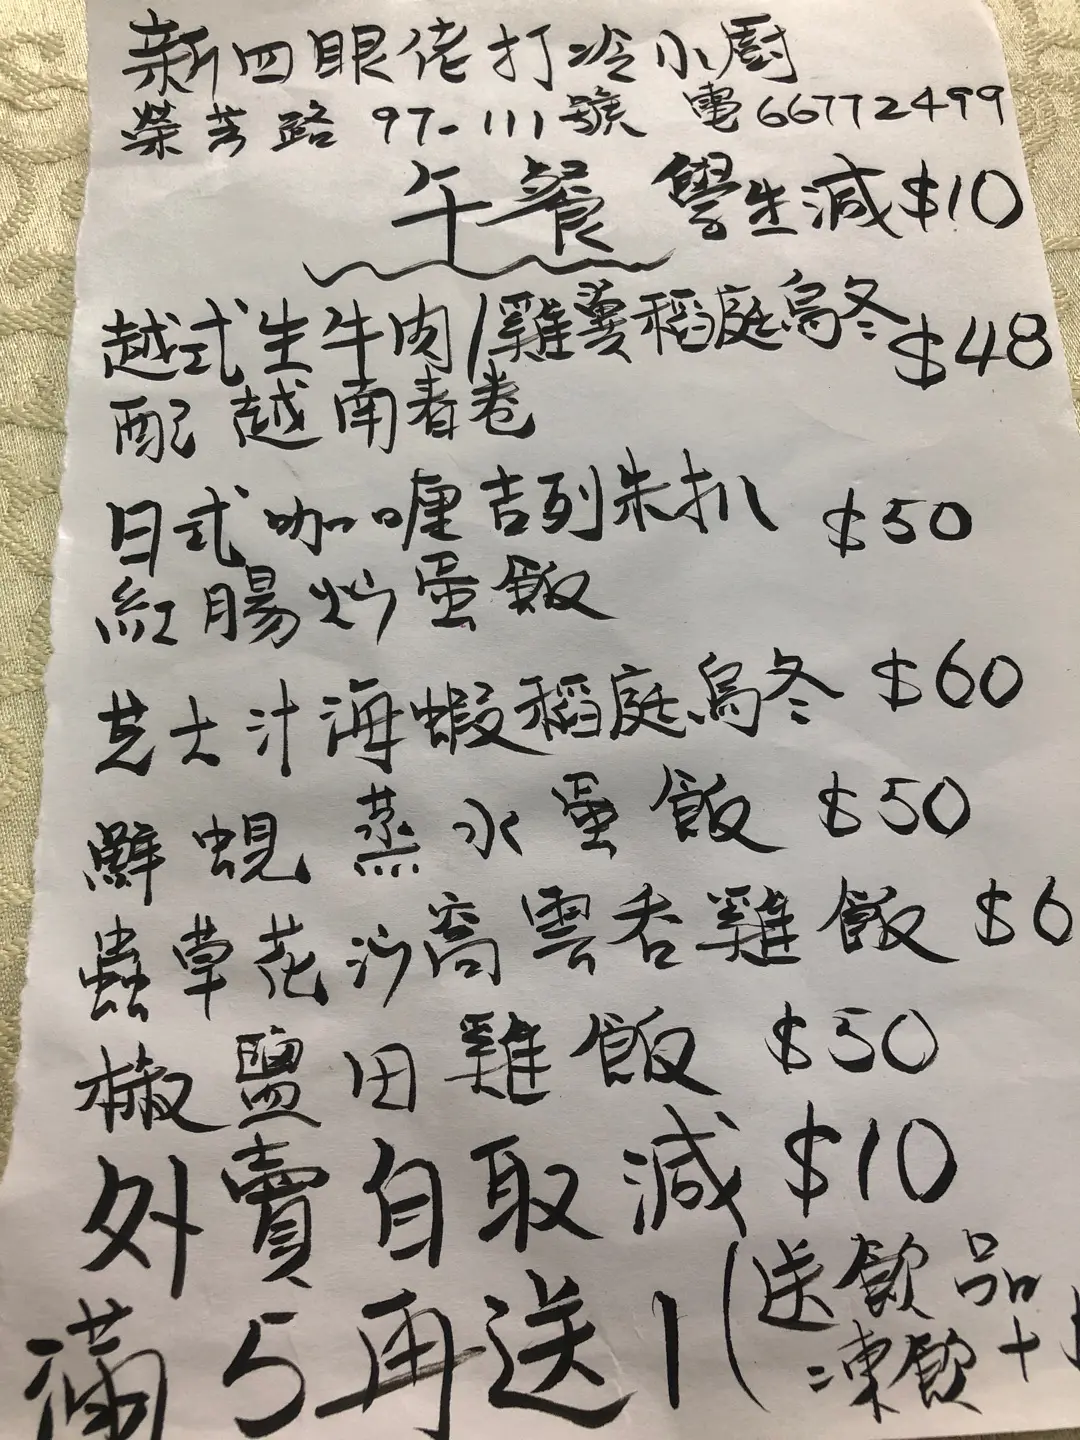 新四眼佬打冷小廚
榮芳路 97-111號 電66772499
午餐 學生減$10
越式生牛肉/雞翼稻庭烏冬 $48
配越南春卷
日式咖喱吉列朱扒 $50
紅腸炒蛋飯
芝士汁海蝦稻庭烏冬 $60
鮮蜆蒸水蛋飯 $50
蟲草花沙窩雲吞雞飯 $6
椒鹽田雞飯 $50
外賣自取減$10
滿5再送1(送飲品
凍飲+